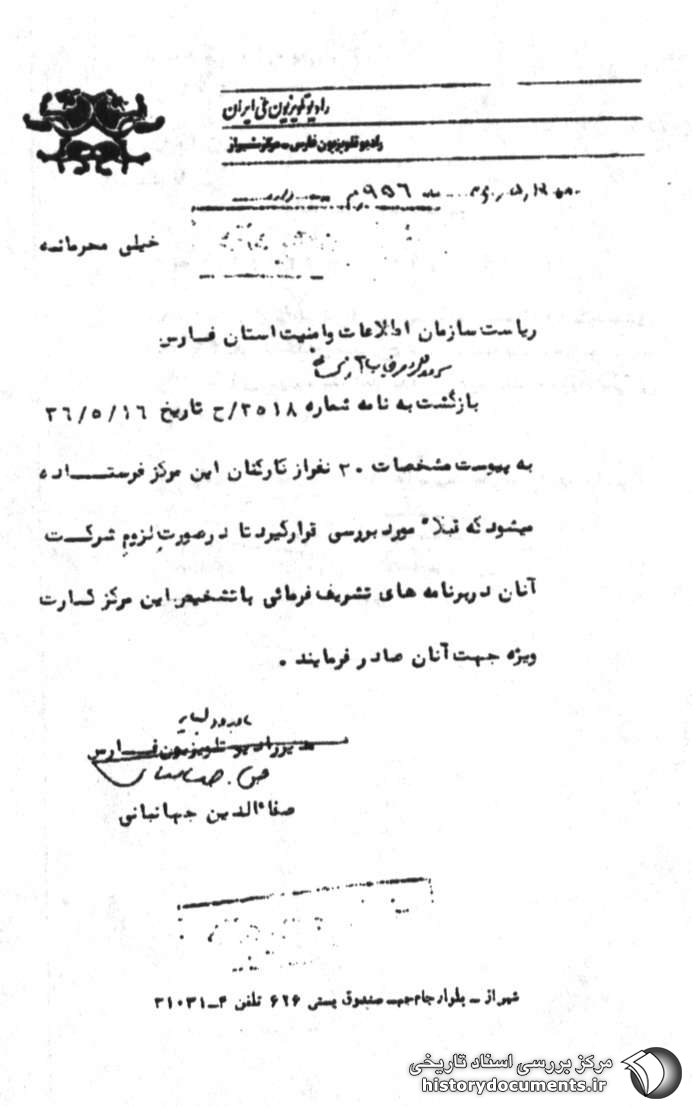 رادیو تلویزیون ملی ایران
رادیو تلویزیون فارس - مرکز شیراز
خیلی محرمانه
ریاست سازمان اطلاعات وامنیت استان فارس
بازگشت به نامه شماره ۳۵۱۸/ح تاریخ ۳۶/۵/۱۶
به پیوست مشخصات ۲۰ نفراز کارکنان این مرکز فرستاده
میشود که قبلاً مورد بررسی قرارگیرد تا درصورت لزوم شرکت
آنان دربرنامه های تشریف فرمائی باتشخیص این مرکز کارت
ویژه جهت آنان صادر فرمایند .
مدیر رادیو تلویزیون فارس
صفاءالدین جهانبانی
شیراز - بلوار جام جم - صندوق پستی ۶۲۶ تلفن ۴-۳۱۰۳۱
مرکز بررسی اسناد تاریخی
historydocuments.ir